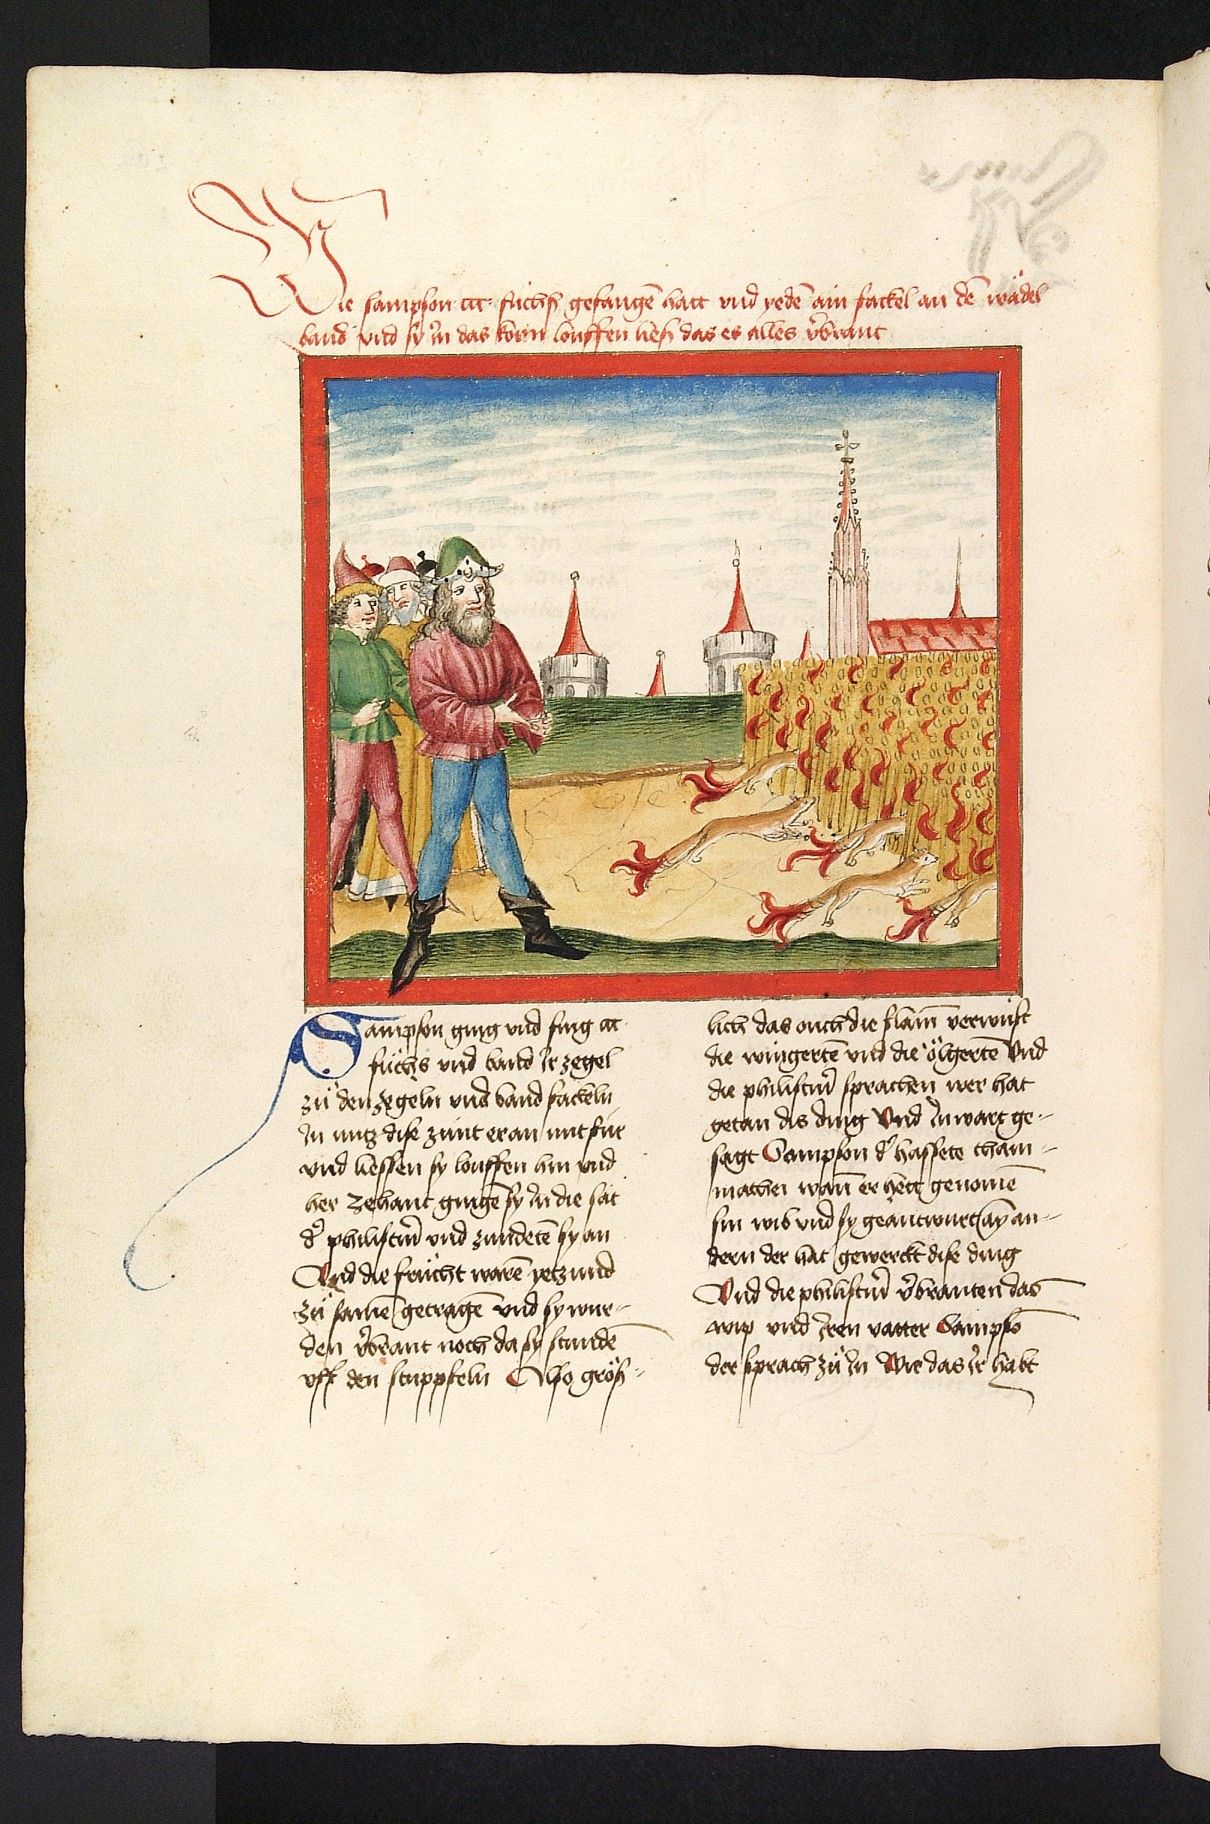 Wie sampson ccc füchß gefangē hatt vnd yedē ain fackel an dē wådel
band vnd sy ÿn das korn louffen ließ das es alles v̓brant
Sampson ging vnd fing ccc
füchs vnd band ir zegel
zů den zegeln vnd band fackeln
in mitz dise zunt er an mit für
vnd liessen sy louffen hin vnd
her zehant gingē sy in die sat
d̓ philistin̄ vnd zundetē sy an
Vnd die frücht warē yetzund
zů samē getragē vnd sy wur-
den v̓brant noch da sy stundē
vff den stuppfeln Also größ-
lich das ouch die flam̄ verwüst
die wingertē vnd die ölgertē Vnd
die philistin̄ sprachen wer hat
getan dis ding Vnd in wart ge-
sagt Sampson d̓ hassete tham-
mathei wan̄ er hett genomē
sin wib vnd sy geantwurt aȳ an-
dern der hat gewerckt dise ding
Vnd die philistin̄ v̓branten das
wip vnd iren vatter Sampsō
der sprach zů in Wie das ir habt